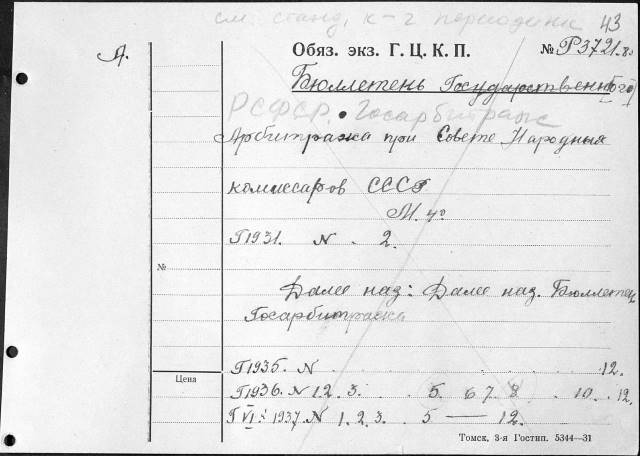 см. станд. к-г периодики 43
А. Обяз. экз. Г.Ц.К.П. № Р3721.80
Бюллетень Государственного
РСФСР. Госарбитраж
Арбитража при Совете Народных
комиссаров СССР
М. 4°
Г1931. N . 2.
№
Далее наз: Далее наз. Бюллетень
Госарбитража
Г1935. N 12.
Цена
Г1936. N 1 2. 3. 5. 6 7. 8. 10. 12.
Г VI: 1937. N 1. 2. 3. 5 — 12.
Томск, 3-я Гостип. 5344—31